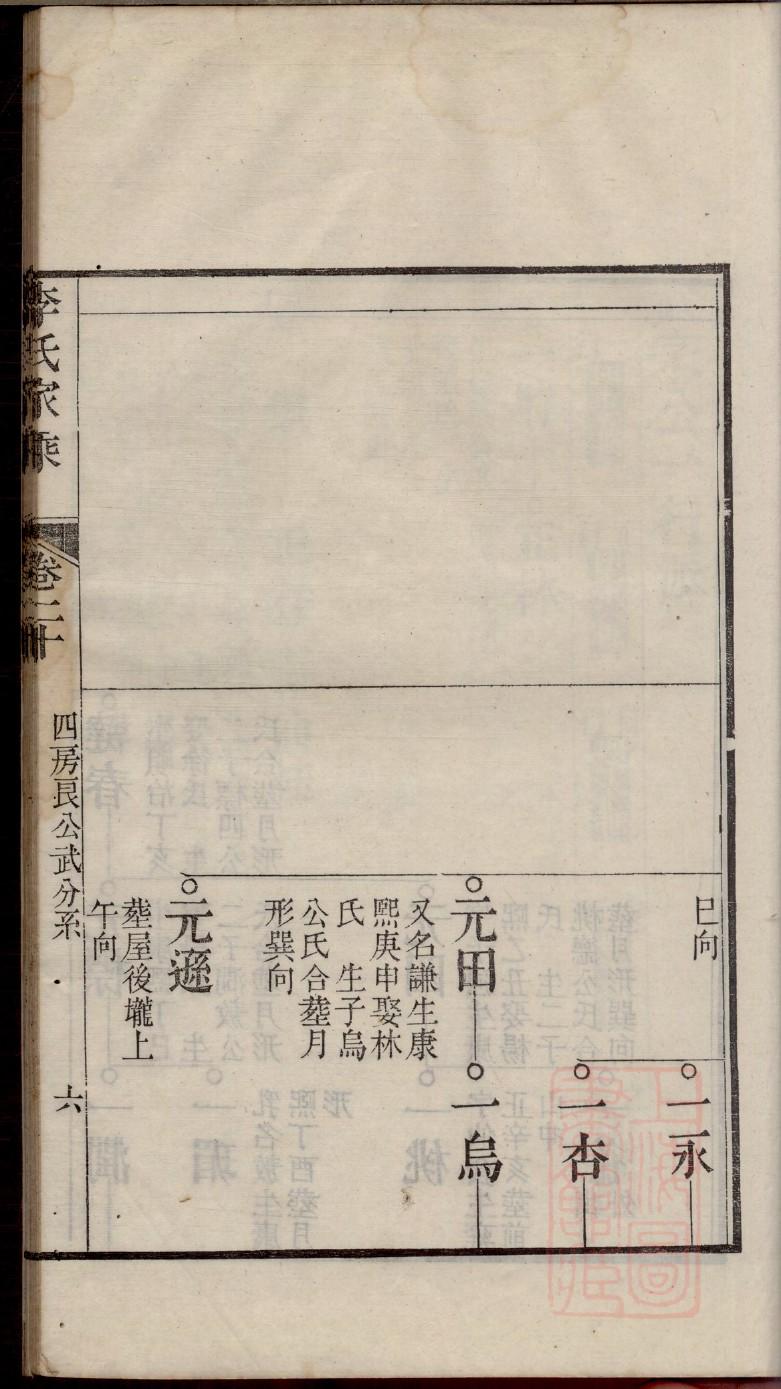 巳向
一永
一杏
元田
又名謙生康
熙庚申娶林
氏　生子烏
公氏合塟月
形巽向
一烏
元遜
塟屋後壠上
午向
李氏家乘
卷二十
四房艮公武分系
六